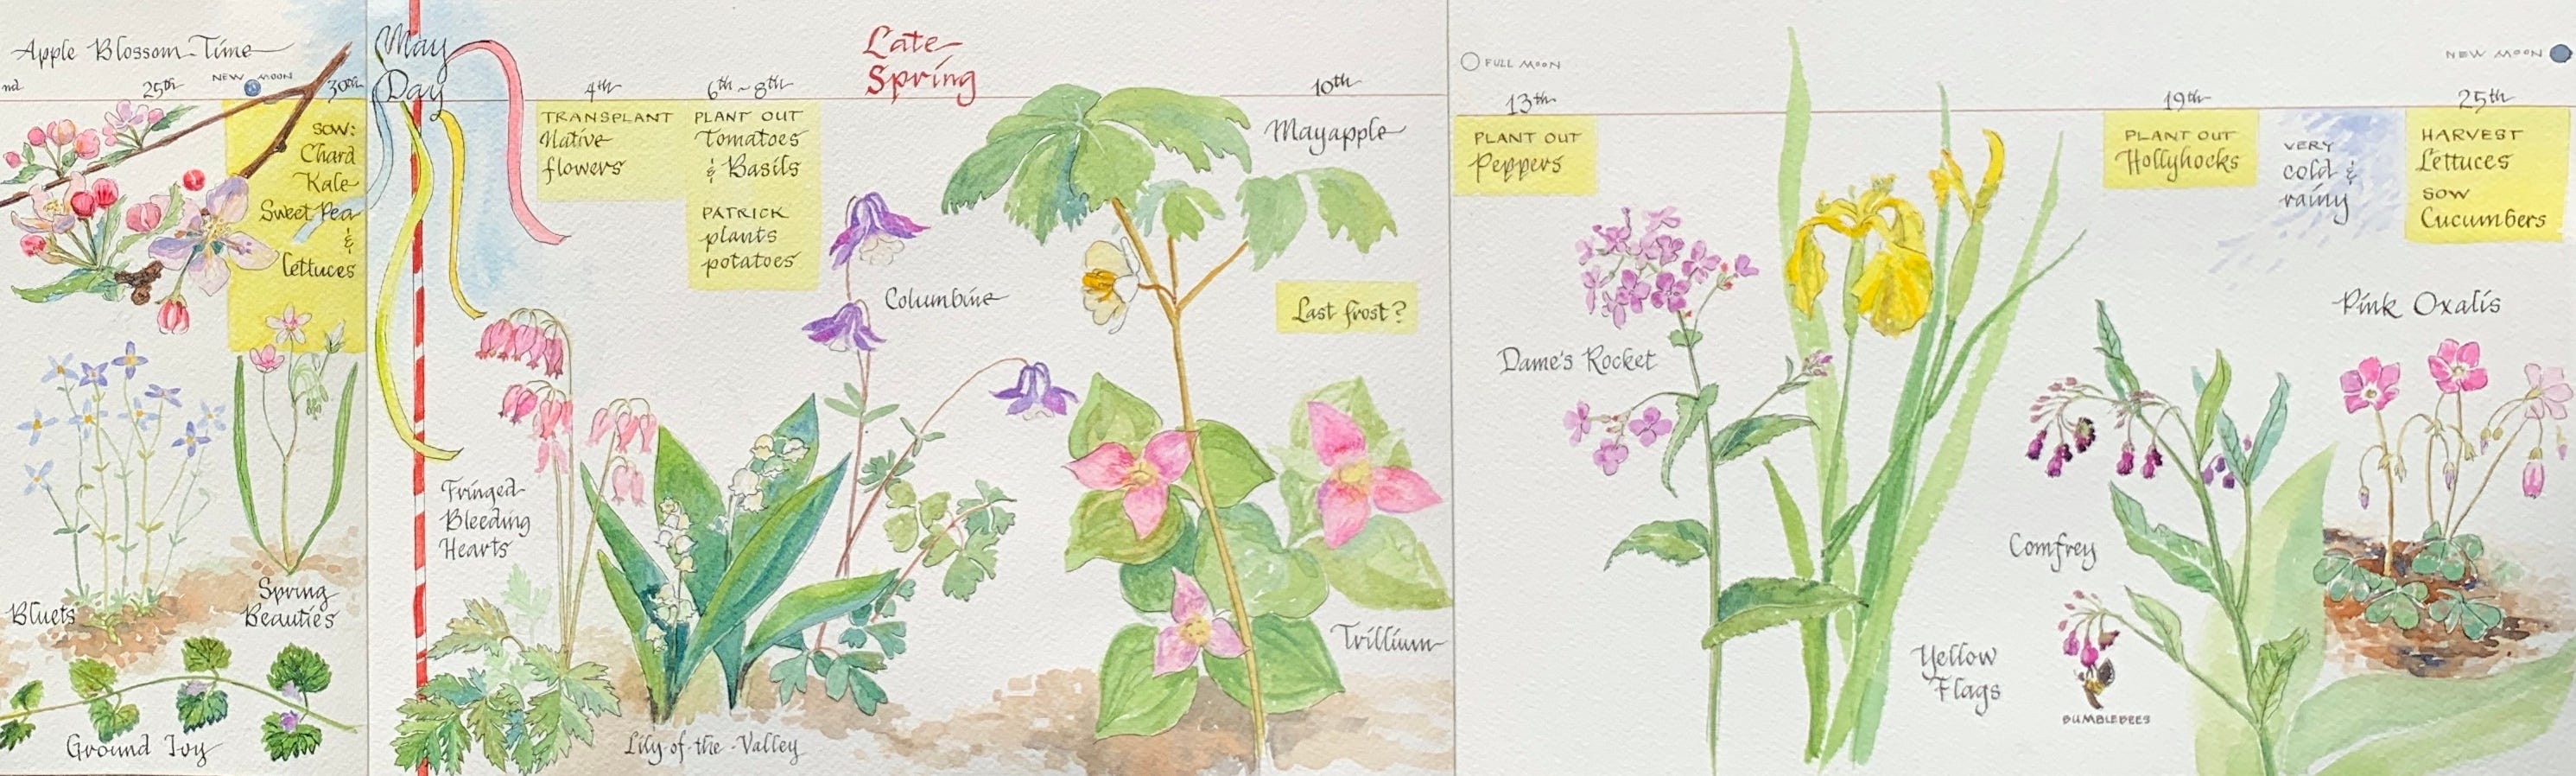 Apple Blossom-Time
nd
25th
NEW MOON
30th
SOW:
Chard
Kale
Sweet Pea
&
Lettuces
Bluets
Spring
Beauties
Ground Ivy
May
Day
Late
Spring
4th
TRANSPLANT
Native
flowers
6th ~ 8th
PLANT OUT
Tomatoes
& Basils
PATRICK
plants
potatoes
10th
Mayapple
Columbine
Last frost?
Fringed
Bleeding
Hearts
Lily-of-the-Valley
Trillium
FULL MOON
13th
PLANT OUT
Peppers
Dame's Rocket
Yellow
Flags
19th
PLANT OUT
Hollyhocks
VERY
cold &
rainy
NEW MOON
25th
HARVEST
Lettuces
SOW
Cucumbers
Pink Oxalis
Comfrey
BUMBLEBEES